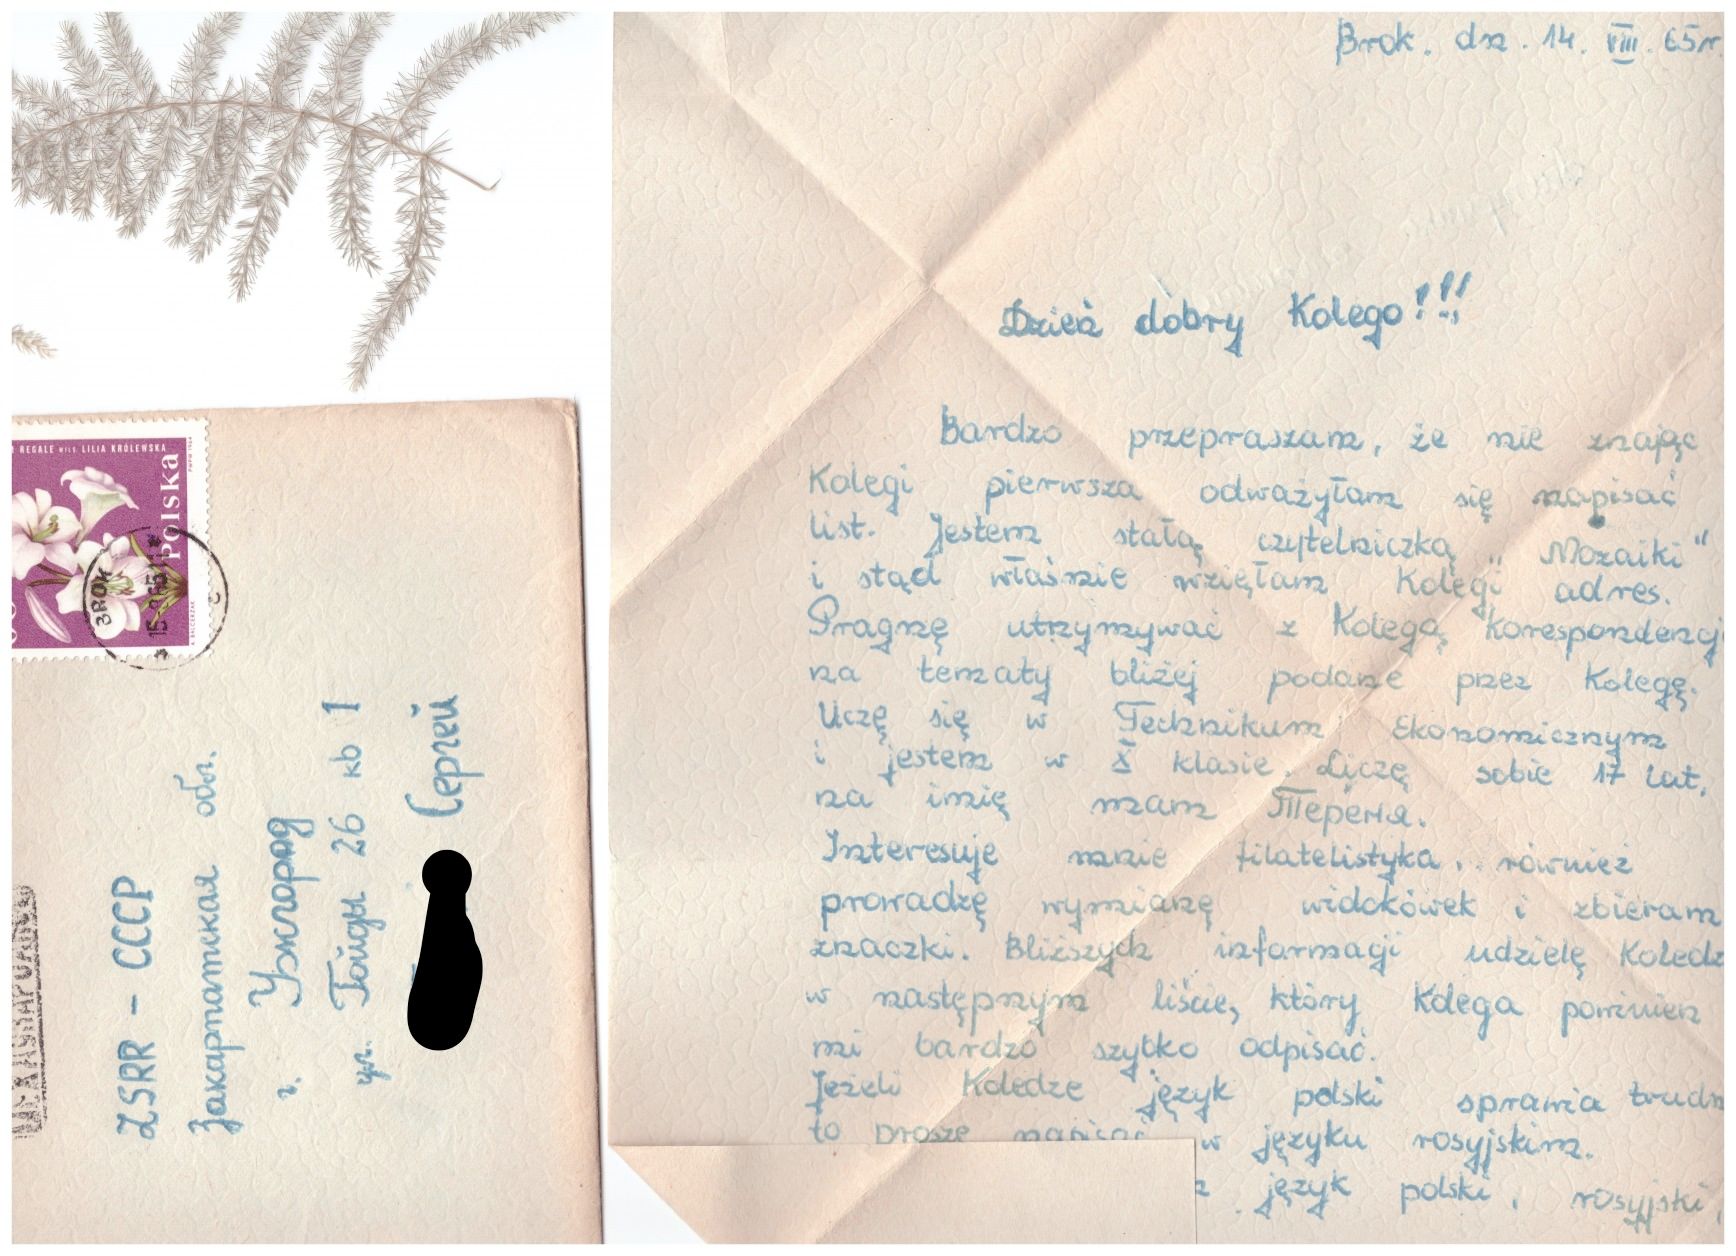 Brok. dn. 14. VIII. 65r.
Dzień dobry Kolego!!!
Bardzo przepraszam, że nie znając
Kolegi pierwsza odważyłam się napisać
list. Jestem stałą czytelniczką „Mozaiki"
i stąd właśnie wzięłam Kolegi adres.
Pragnę utrzymywać z Kolegą korespondencj
na tematy bliżej podane przez Kolegę.
Uczę się w Technikum Ekonomicznym
i jestem w X klasie. Liczę sobie 17 lat,
na imię mam Тереня.
Interesuje mnie filatelistyka, również
prowadzę wymianę widokówek i zbieram
znaczki. Bliższych informagi udzielę Koledz
w następnym liście, który Kolega powinien
mi bardzo szybko odpisać.
Jeżeli Koledze język polski sprawia trudn
to proszę napisać w języku rosyjskim.
język polski, rosyjski,
REGALE WILS. LILIA KRÓLEWSKA
Polska
BROK
ZSRR - CCCP
Закарпатская обл.
г. Ужгород
ул. Гойды 26 кв 1
Сергей